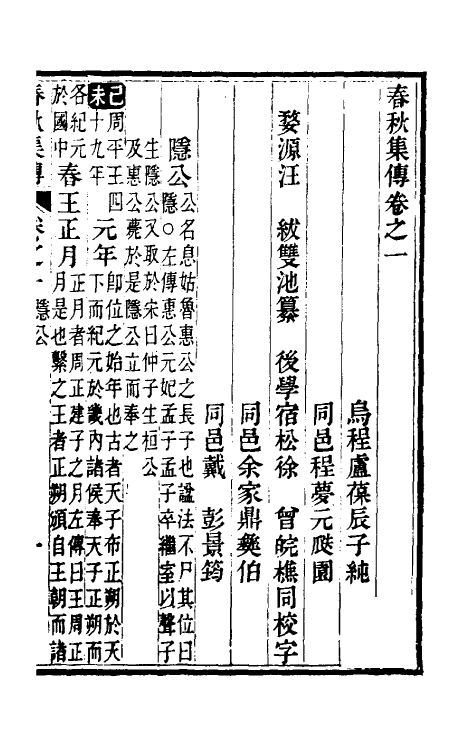 春秋集傳卷之一
烏程盧葆辰子純
同邑程夢元殿園
婺源汪 紱雙池纂 後學宿松徐 曾皖樵同校字
同邑余家鼎夔伯
同邑戴 彭景筠
隱公 公名息姑魯惠公之長子也諡法不尸其位曰
隱○左傳惠公元妃孟子孟子卒繼室以聲子
生隱公又取於宋曰仲子生桓公
及惠公薨於是隱公立而奉之
己未 周平王四
十九年 元年 卽位之始年也古者天子布正朔於天
下而紀元於畿內諸侯奉天子正朔而
各紀元
於國中 春王正月 正月者周正建子之月左傳曰王周正
月是也繫之王者正朔頒自王朝而諸
春秋集傳 卷之一 隱公 一